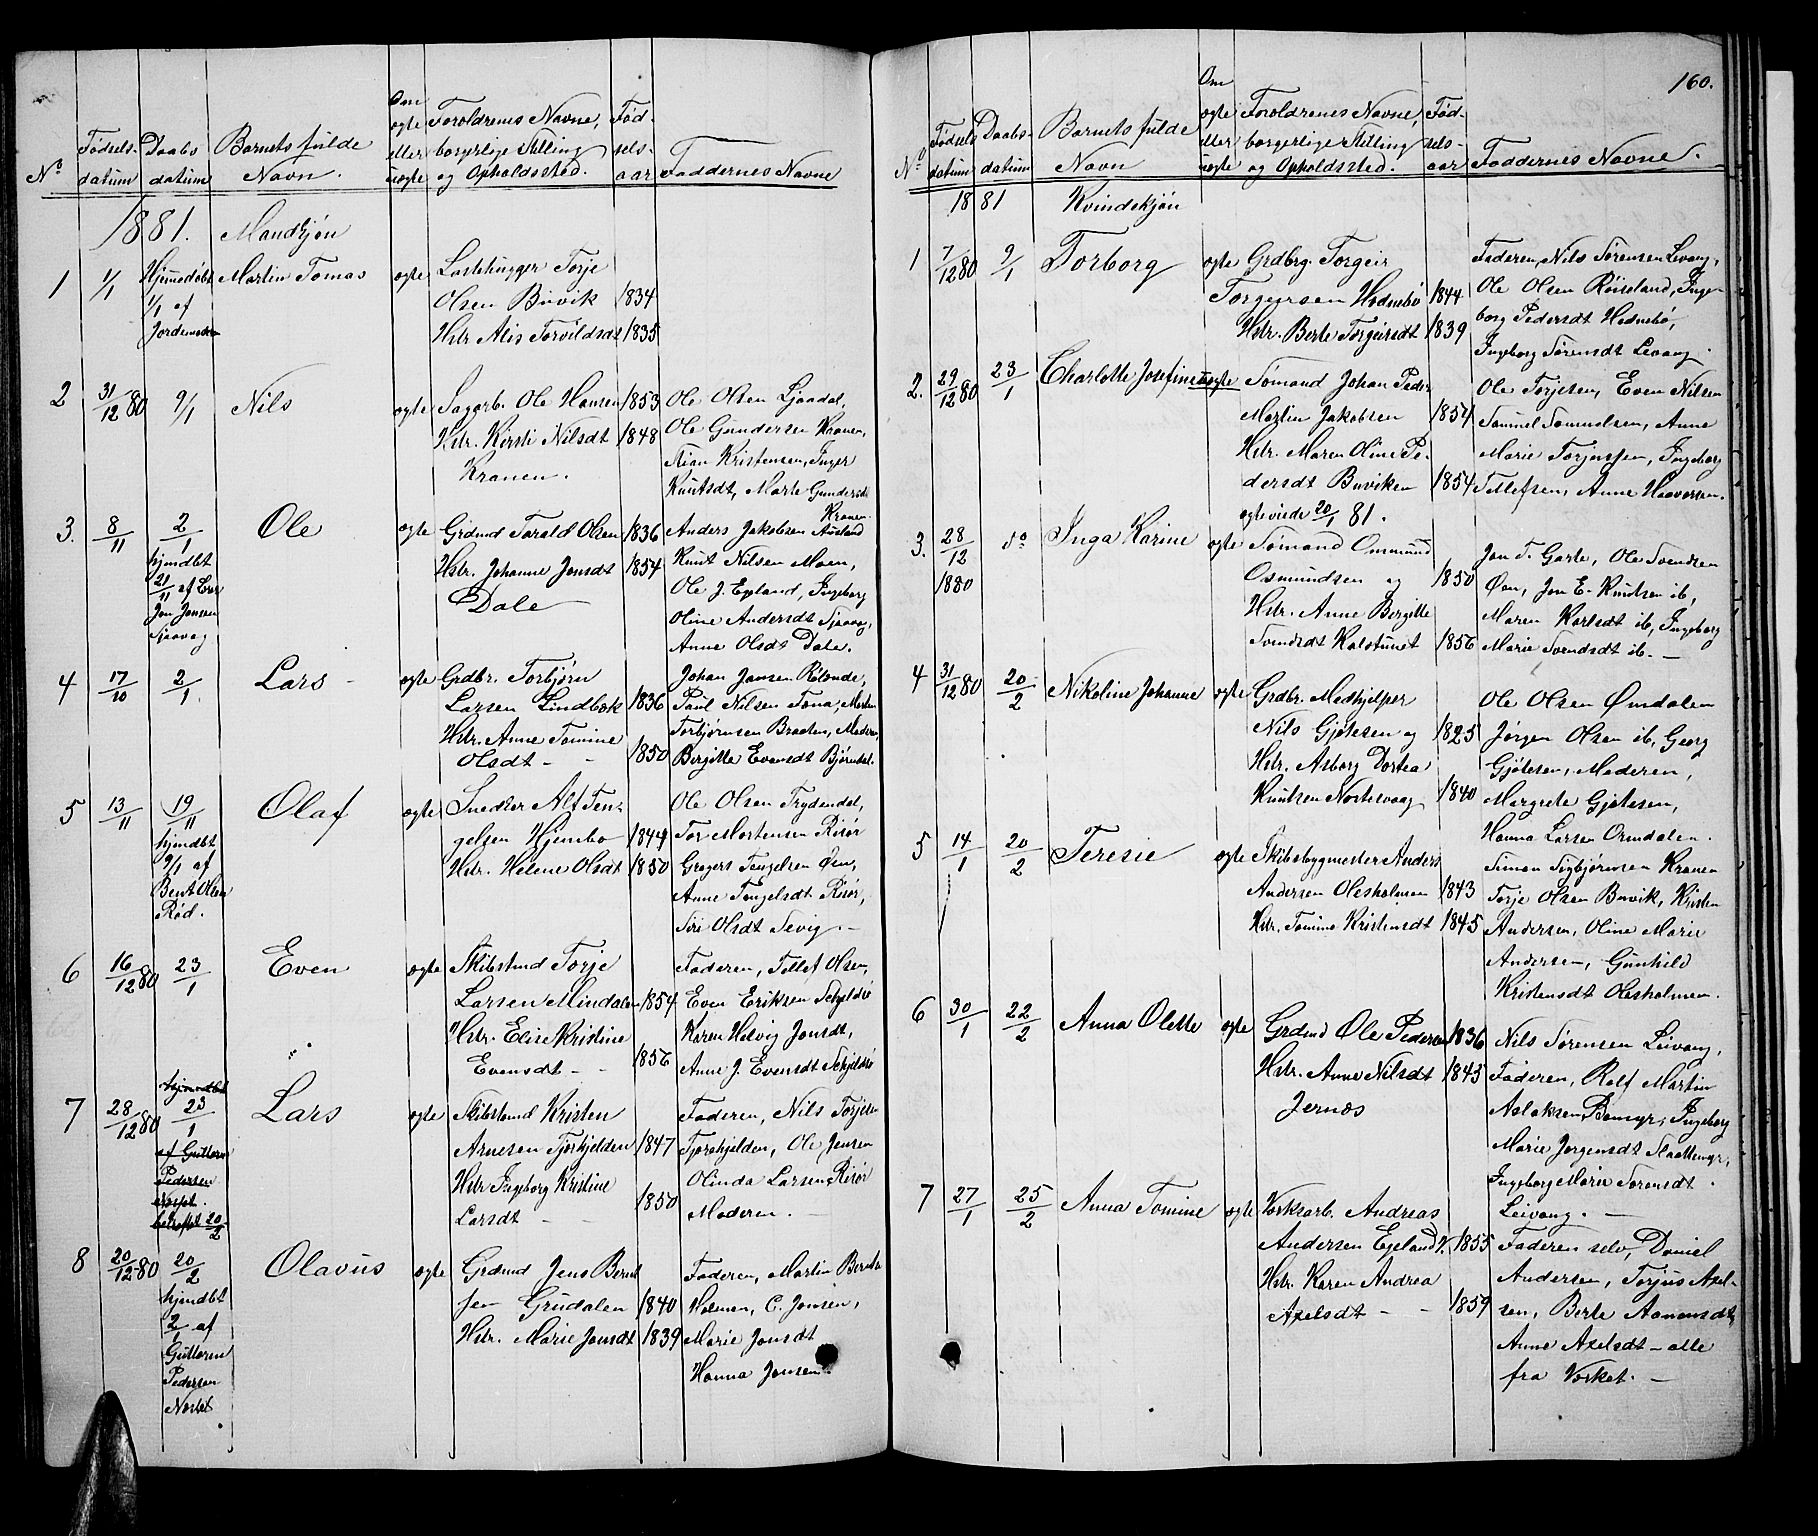 160.
No Fødsels-datum Daabs datum Barnets fulde Navn. Om ægte eller uægte Forældrenes Navne, borgerlige Stilling og Opholdssted. Fød-sels-aar Faddernes Navne
1881. Mandkjøn
1 1/1 Hjemmedøbt 1/1 af Jordemoderen Martin Tomas ægte
Lastehugger Torje
Olsen Buvik 1834
Hstr. Alis Torvildsdt 1835
2 31/12 80 9/1 Nils ægte
Sagarb. Ole Hansen 1853
Hstr. Kirsti Nilsdt 1848
Kranen.
Ole Olsen Ljaadal,
Ole Gundersen Kranen,
Kristensen, Inger
Knutsdt, Marte Gundersdt
Kranen.
3. 8/11 2/1 hjmdbt 21/11 af
Jon Jensen
Sjaavag
Ole ægte
Grdmd Torald Olsen 1836
Hstr. Johanne Jonsdt 1854
Dale
Anders Jakobsen Austad
Knut Nilsen Moen,
Ole J. Egeland, Ingeborg
Oline Andersdt Sjaavag,
Anne Olsdt Dale.
4 17/10 2/1 Lars ægte
Grdbr. Torbjørn
Larsen Lindbæk 1836
Hstr. Anne Tomine
Olsdt - - 1850
Johan Jansen Rølonde,
Paul Nilsen Tona, Morten
Torbjørnsen Braaten, Moderen,
Birgitte Evensdt Bjørndal.
5 13/11 19/11
hjmdbt
9/1 af
Bent Olsen
Rød.
Olaf ægte
Snedker Alf Ten-
gelsen Hjembo 1849
Hstr. Helene Olsdt 1850
Ole Olsen Trydendal,
Tor Mortensen Risør
Gregers Tengelsen Øen,
Anne Tengelsdt Risør,
Siri Olsdt Sevig. -
6 16/12 80 23/1 Even ægte
Skibstmd Torje
Larsen Mindalen 1854
Hstr. Elise Kristine
Evensdt - - 1856
Faderen, Tellef Olsen,
Even Eriksen Skjeldsø
Karen Helvig Jonsdt,
Anne J. Evensdt Skjeldsø
7 28/12 80
hjmdbt
23/1
af Guttorm
Pedersen
Næset
bekræftet 20/2
Lars ægte
Skibstmd Kristen
Arnesen Fjørkjelden 1847
Hstr Ingeborg Kristine
Larsdt - - 1850
Faderen, Nils Torjesen
Fjørkjelden, Ole Jensen
Olinda Larsen Risør
Moderen. -
8 20/12 80 20/2
hjmdbt
2/1 af
Guttorm
Pedersen
Næset
Olavus ægte
Grdmd Jens Bernt
sen Grudalen 1840
Hstr. Marie Jonsdt 1839
Faderen, Martin Berntsen
Holmen, C. Jonsen,
Marie Jonsdt
Hanna Jonsen.
No Fødsels datum Daabs-datum Barnets fulde Navn Om ægte eller uægte Forældrenes Navne, borgerlige Stilling og Opholdssted. Fød-sels-aar Faddernes Navne.
1881 Kvindekjøn
1 7/12 80 9/1 Torborg ægte
Grdbrg. Torgeir
Torgeirsen Hødnebø 1844
Hstr. Berte Torgeirsdt 1839
Faderen, Nils Sørensen Levang,
Ole Olsen Røiseland, Inge-
borg Pedersdt Hødnebø,
Ingeborg Sørensdt Levang.
2. 29/12 80 23/1 Charlotte Josefine uægte
Sømand Johan Peder
Martin Jakobsen 1854
Hstr. Maren Oline Pe-
dersdt Buviken 1854
ægteviede 20/1 81.
Ole Torjesen, Even Nilsen
Samuel Samuelsen, Anne
Marie Torjensen, Ingeborg
Tellefsen, Anne Haaversen.
3. 28/12 1880 do Inga Karine ægte
Sømand Ommund
Osmundsen og 1850
Hstr. Anne Birgitte
Svendsdt Kalstunet 1856
Jon T. Garte, Ole Svendsen
Øen, Jon E. Knutsen ib,
Maren Karlsdt ib, Ingeborg
Marie Svendsdt ib. -
4 31/12 80 20/2 Nikoline Johanne ægte
Grdbr. Medhjelper
Nils Gjøtesen og 1825
Hstr. Asborg Dortea
Knutsen Nortevaag 1840
Ole Olsen Ømdalen
Jørgen Olsen ib, Georg
Gjøtesen, Moderen,
Margrete Gjøtesen,
Hanna Larsen Ømdalen.
5 14/1 20/2 Teresie ægte
Skibsbygmester Anders
Andersen Olesholmen 1843
Hstr. Tomine Kristensdt 1845
Simon Sigbjørnsen Kranen
Torje Olsen Buvik, Kristen
Andersen, Oline Marie
Andersen, Gunhild
Kristensdt Olesholmen.
6 30/1 22/2 Anna Olette ægte
Grdmd Ole Pedersen 1836
Hstr. Anne Nilsdt 1843
Jernæs
Nils Sørensen Leivang,
Faderen, Rolf Martin
Aslaksen, Ingeborg
Marie Jørgensdt Slaattemyr,
Ingeborg Marie Sørensdt
Leivang. -
7 27/1 25/2 Anna Tomine ægte
Værksarb. Andreas
Andersen Egeland V. 1855
Hstr. Karen Andrea
Axelsdt - - 1859
Faderen selv, Daniel
Andersen, Torjus Axel-
sen, Berte Aanonsdt,
Anne Axelsdt - alle
fra Værket. -